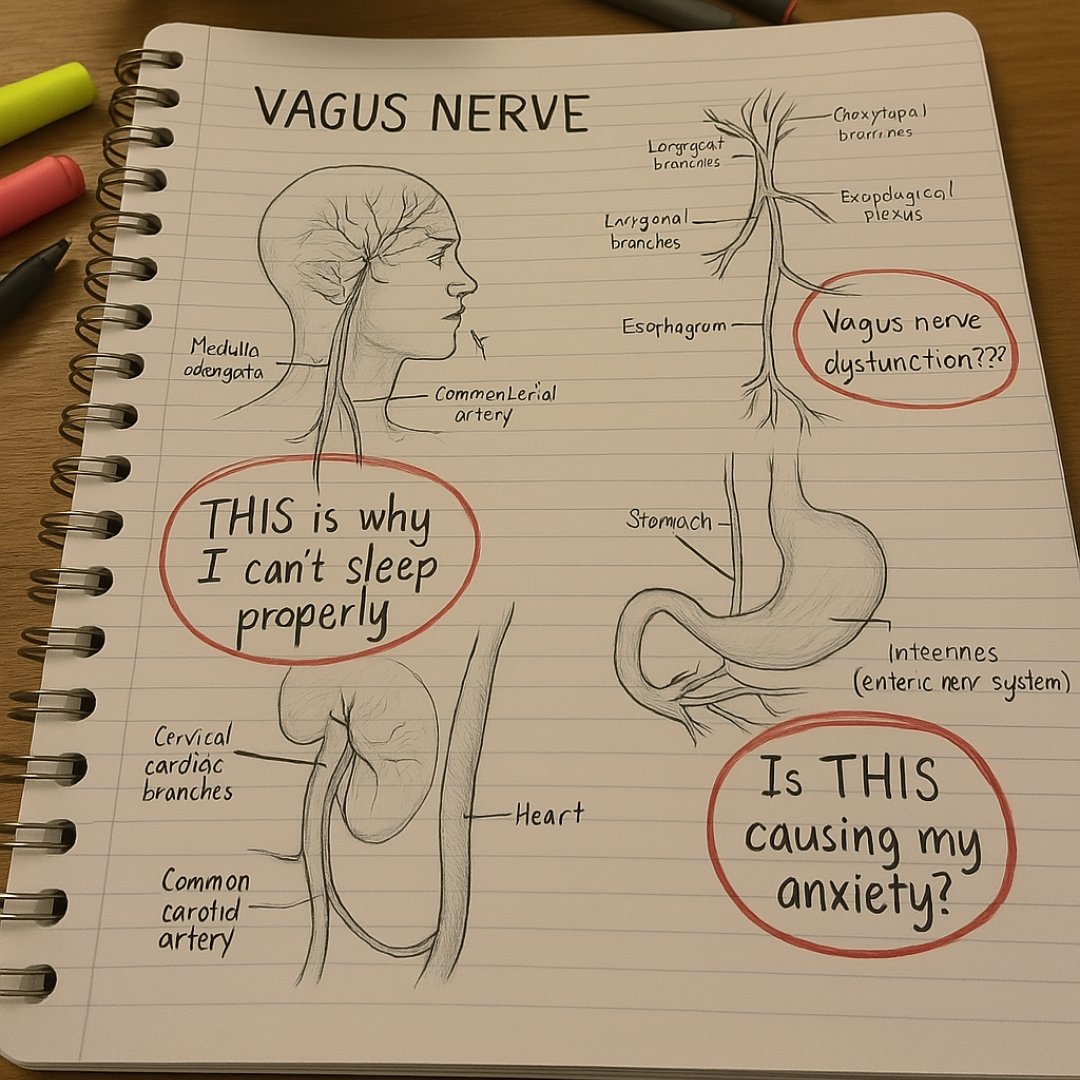 VAGUS NERVE
Medulla
odengata
CommenLerial
artery
THIS is why
I can't sleep
properly
Cervical
cardiac
branches
Heart
Common
carotid
artery
Choxytapal
Lorgrgcat
Exopdagical
plexus
Lnrygonal
branches
Esorhagrom
Vagus nerve
dystunction???
Stomach
Inteennes
(enteric nerv system)
Is THIS
causing my
anxiety?